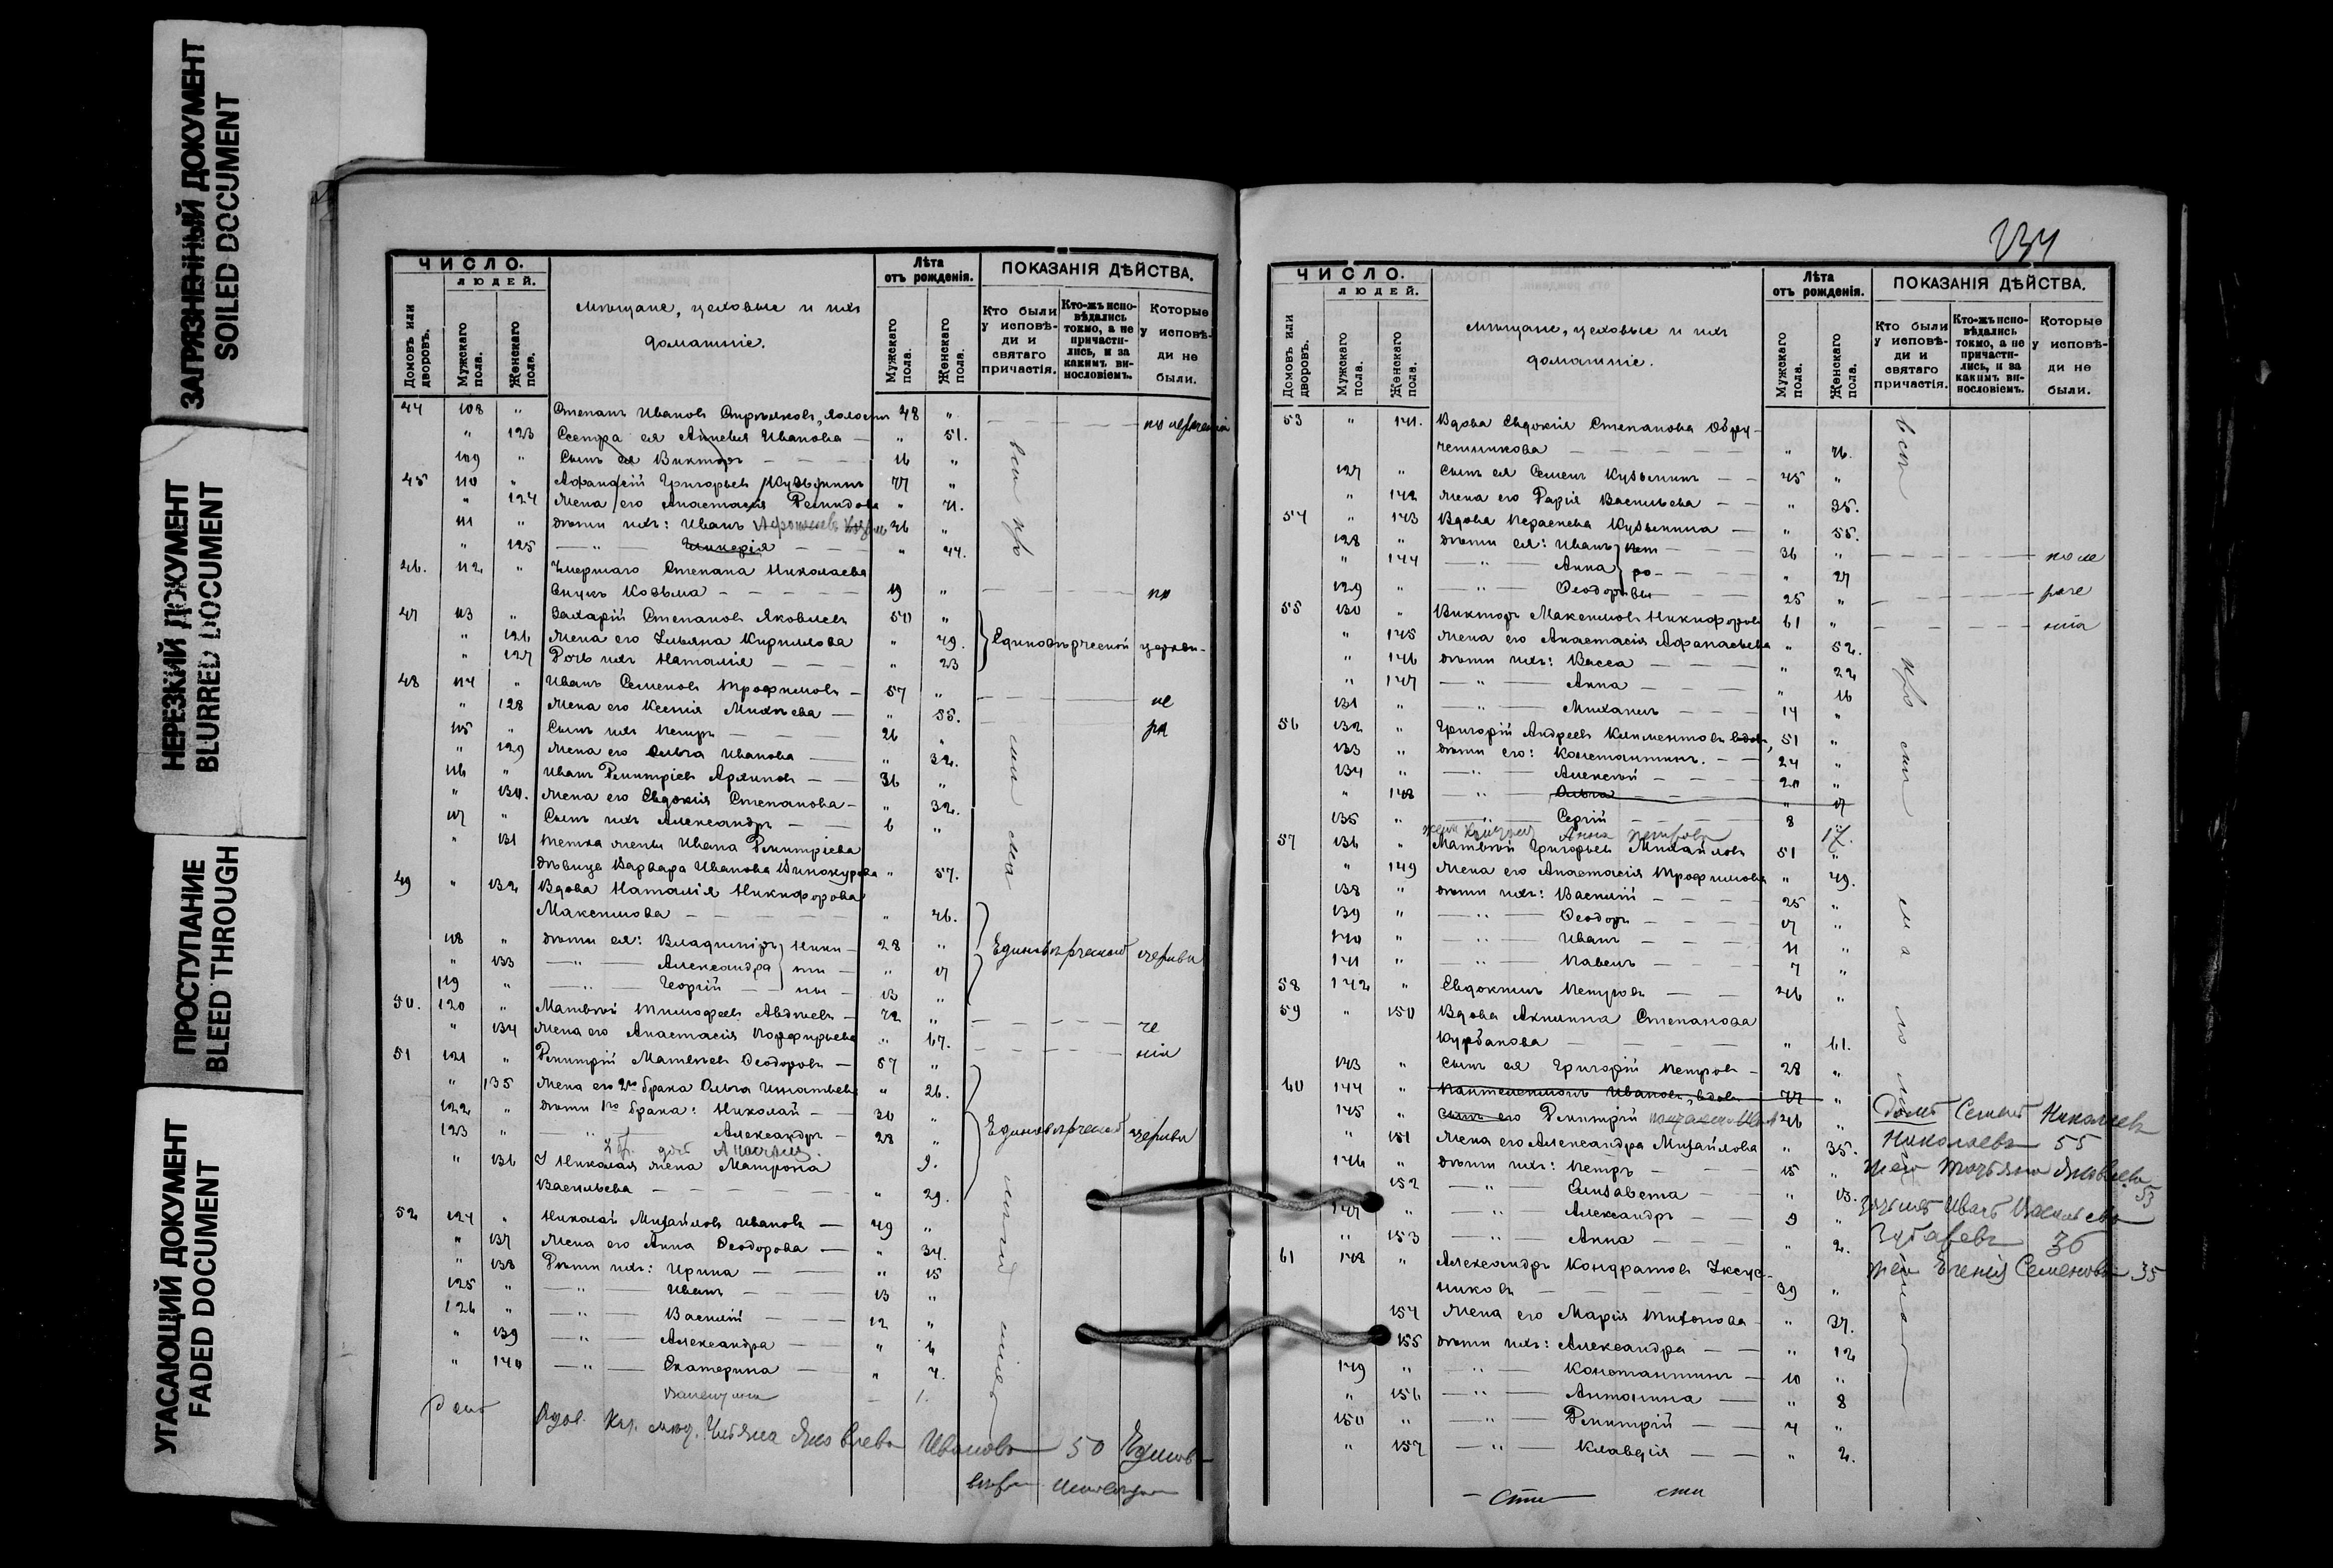 ЗАГРЯЗНЕННЫЙ ДОКУМЕНТ
SOILED DOCUMENT
НЕРЕЗКИЙ ДОКУМЕНТ
BLURRED DOCUMENT
ПРОСТУПАНИЕ
BLEED THROUGH
УГАСАЮЩИЙ ДОКУМЕНТ
FADED DOCUMENT
ЧИСЛО.
ЛЮДЕЙ.
Домовъ или дворовъ.
Мужскаго пола.
Женскаго пола.
Мѣщане, цеховые и ихъ
домашніе.
Лѣта
отъ рожденія.
Мужскаго пола.
Женскаго пола.
ПОКАЗАНІЯ ДѢЙСТВА.
Кто были у исповѣ-ди и святаго причастія.
Кто-жъ испо-вѣдались токмо, а не причасти-лись, и за какимъ ви-нословіемъ.
Которые у исповѣ-ди не были.
44 108 " Степанъ Ивановъ Стрѣлковъ, холостъ 48 "
" 123 Сестра ея Иванова — " 51.
109 " Сынъ ея Викторъ — — — 16 "
45 110 " Афанасій Григорьевъ Кузьминъ 77 "
" 124 Жена его Анастасія Демидова " 71.
111 " Дѣти ихъ: Иванъ 46 "
" 125 — " — Гликерія — — — " 44.
46. 112 " Умершаго Степана Николаева
Внукъ Козьма — — — — 19 "
47 113 " Захарій Степановъ Яковлевъ 50 "
" 126 Жена его Ульяна Кириллова " 49. Единовѣрческой церкви
" 127 Дочь ихъ Наталія — — — " 23
48 114 " Иванъ Семеновъ Трофимовъ — 57 "
" 128 Жена его Ксенія Михѣева — " 55.
115 " Сынъ ихъ Петръ — — — 26 "
" 129 Жена его Ольга Иванова — " 32.
116 " Иванъ Димитріевъ Архиповъ — — 36 "
" 130. Жена его Евдокія Степанова — " 32.
117 " Сынъ ихъ Александръ — — 6 "
" 131 Тетка жены Ивана Димитріева
дѣвица Варвара Иванова Винокурова " 57.
49 " 132 Вдова Наталія Никифорова
Максимова — — — — " 46.
118 " Дѣти ея: Владиміръ 28 "
" 133 — " — Александра " 17 Единовѣрческой церкви
119 " — " — Георгій — 13 "
50. 120 " Матвѣй Тимофеевъ Авдѣевъ — 72 "
" 134 Жена его Анастасія Порфирьева " 67.
51 121 " Димитрій Матвѣевъ Ѳеодоровъ — 57 "
" 135 Жена его 2го брака Ольга Игнатьева " 26.
122 " Дѣти 1го брака: Николай — — 30 "
123 " — " — Александръ — 28 " Единовѣрческой церкви
" 136 У Николая жена Матрона 9.
Васильева — — — — " 29.
52 124 " Николай Михайловъ Ивановъ — 49 "
" 137 Жена его Анна Ѳеодорова — " 34.
" 138 Дѣти ихъ: Ирина — — " 15
125 " — " — Иванъ — — 13 "
126 " — " — Василій — — 12 "
" 139 — " — Александра — " 6
" 140 — " — Екатерина — " 4.
Валентина — 1.
Яковлева Иванова 50
234
ЧИСЛО.
ЛЮДЕЙ.
Домовъ или дворовъ.
Мужскаго пола.
Женскаго пола.
Мѣщане, цеховые и ихъ
домашніе.
Лѣта
отъ рожденія.
Мужскаго пола.
Женскаго пола.
ПОКАЗАНІЯ ДѢЙСТВА.
Кто были у исповѣ-ди и святаго причастія.
Кто-жъ испо-вѣдались токмо, а не причасти-лись, и за какимъ ви-нословіемъ.
Которые у исповѣ-ди не были.
53 " 141. Вдова Евдокія Степанова Обру-
чешникова — — — — " 76.
127 " Сынъ ея Семенъ Кузьминъ — — 45 "
" 142 Жена его Дарія Васильева — — " 35.
54 " 143 Вдова Параскева Кузьмина — " 55.
128 " Дѣти ея: Иванъ Пет — — — 36 "
" 144 — " — Анна ро — — — " 27
129 " — " — Ѳеодоръ вы — — — 25 "
55 130 " Викторъ Максимовъ Никифоровъ 61 "
" 145 Жена его Анастасія Афанасьева " 52.
" 146 Дѣти ихъ: Васса — — — " 22
" 147 — " — Анна — — — " 16
131 " — " — Михаилъ — — — 14 "
56 132 " Григорій Андреевъ Климентовъ вдовъ, 51 "
133 " Дѣти его: Константинъ. — — 24 "
134 " — " — Алексѣй — — — 20 "
" 148 — " — Ольга — — — " 17
135 " — " — Сергій — — 8 "
Анна Петрова 17.
57 136 " Матвѣй Григорьевъ Михайловъ 51 "
" 149 Жена его Анастасія Трофимова " 49.
138 " Дѣти ихъ: Василій — — — 25 "
139 " — " — Ѳеодоръ — — — 17 "
140 " — " — Иванъ — — — 11 "
141 " — " — Павелъ — — — 7 "
58 142 " Евдокимъ Петровъ — — 46 "
59 " 150 Вдова Акилина Степанова
Курбакова — — — — " 61.
143 " Сынъ ея Григорій Петровъ — 28 "
60 144 " Пантелеимонъ Ивановъ, вдовъ 77 "
145 " Сынъ его Димитрій 46 "
" 151 Жена его Александра Михайлова " 35.
146 " Дѣти ихъ: Петръ — — 15 "
" 152 — " — Елизавета — — " 13.
147 " — " — Александръ — — 9 "
" 153 — " — Анна — — — " 2.
Николаевъ 55
Яковлева 53
Иванъ
36
Евгенія Семенова 35
61 148 " Александръ Кондратовъ Уксус-
никовъ — — — — 39 "
154 Жена его Марія Тихонова — " 37.
155 Дѣти ихъ: Александра — — " 12
149 " — " — Константинъ — 10 "
" 156 — " — Антонина — — " 8
150 " — " — Димитрій — — 4 "
" 157 — " — Клавдія — — " 2.